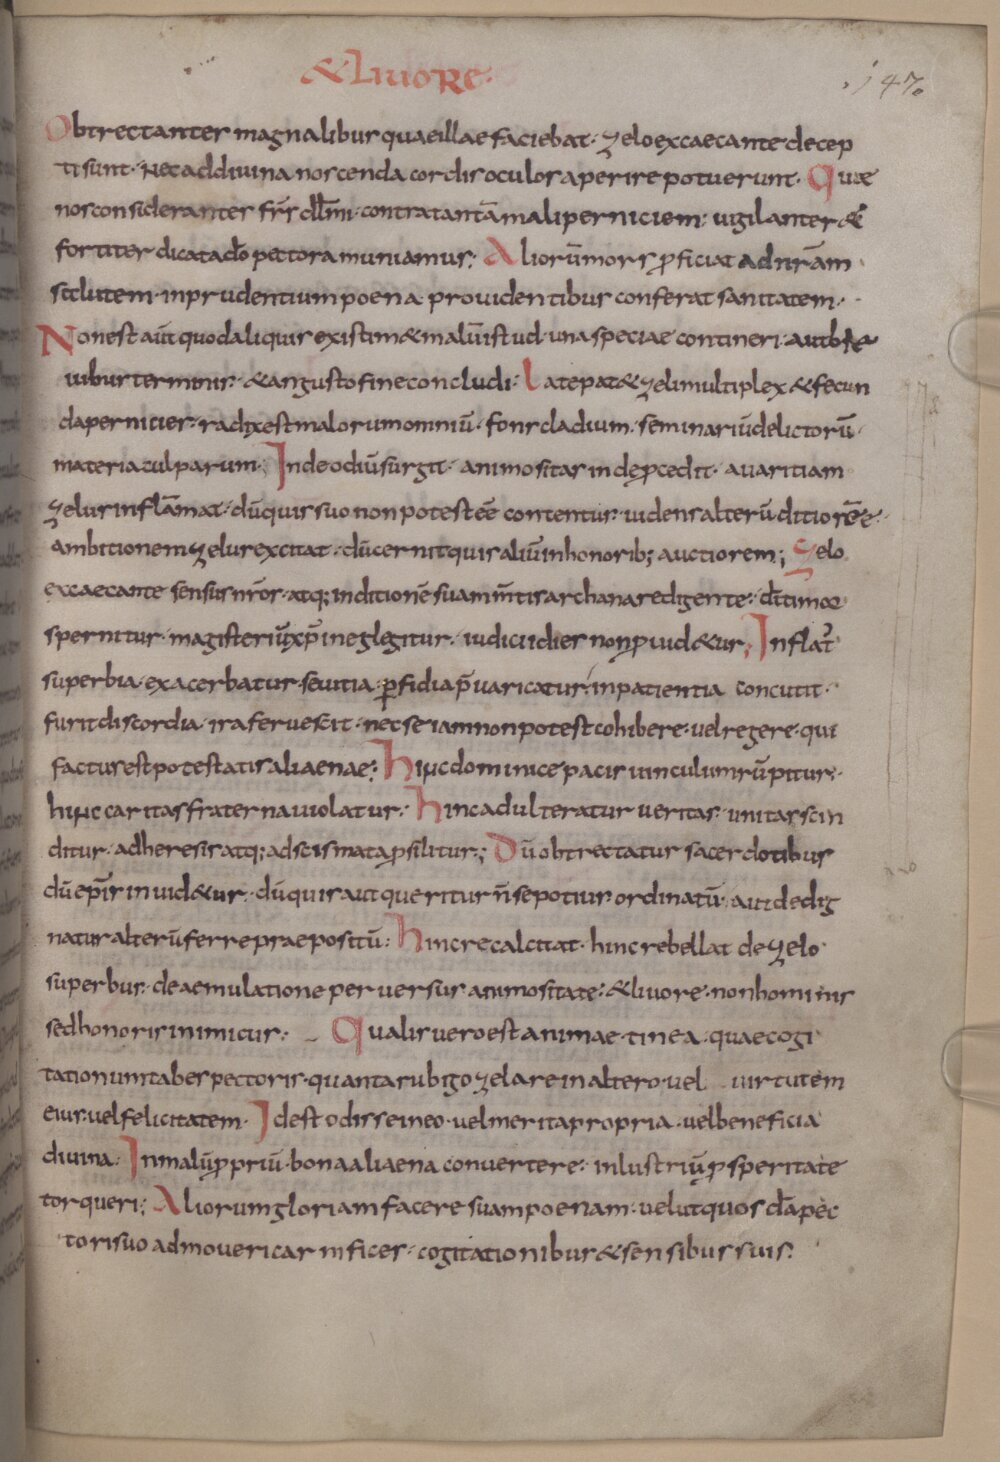 & Liuore·
147.
Obtrectanter magnalibus quae illae faciebat· zelo excaecante decep
ti sunt· nec ad diuina noscenda cordis oculos aperire potuerunt· Quae
nos considerantes frs̄ dll̄mi· contra tantā mali perniciem; uigilanter &
fortiter dicata dō pectora muniamus; Aliorū mors ꝓficiat ad nrām
salutem· inprudentium poena prouidentibus conferat sanitatem·
Non est aūt quod aliquis existim& malū istud· una speciae contineri· aut bre
uibus terminis· & angusto fine concludi· Late pat& zeli multiplex & fecun
da pernicies· radix est malorum omniū· fons cladium· seminariū delictorū·
materia culparum· Inde odiū surgit· animositas inde ꝓcedit· auaritiam
zelus inflāmat· dū quis suo non potest eē contentus· uidens alterū ditiorē eē·
ambitionem zelus excitat· dū cernit quis aliū in honorib; auctiorem; Zelo
excaecante sensus nr̄os· atq; in ditionē suam m̄tis archana redigente· dī timor
spernitur· magisteriū xp̄i neglegitur· iudicii dies non ꝓuid&ur; Inflat̄
superbia· exacerbatur seuitia· ꝑfidia p̄uaricatur· inpatientia concutit·
furit discordia· ira feruescit· nec se iam non potest cohibere· uel regere· qui
factus est potestatis aliaenae; Hinc dominice pacis uinculum rūpitur·
hinc caritas fraterna uiolatur· Hinc adulteratur ueritas· unitas scin
ditur· ad heresis atq; ad scismata ꝓsilitur; Dū obtrectatur sacerdotibus
dū ep̄is inuid&ur· dū quis aut queritur n̄ se potius ordinatū· aut dedig
natur alterū ferre praepositū; Hinc recalcitat· hinc rebellat de zelo
superbus· de aemulatione peruersus animositate· & liuore· non hominis
sed honoris inimicus· Qualis uero est animae tinea· quae cogi
tationum tabes pectoris· quanta rubigo zelare in altero· uel uirtutem
eius· uel felicitatem· Id est odisse in eo· uel merita propria· uel beneficia
diuina· In malū ꝓpriū· bona aliaena conuertere· inlustriū ꝓsperitate
torqueri; Aliorum gloriam facere suam poenam· uelut quosdā pec
tori suo admoueri carnifices· cogitationibus & sensibus suis·